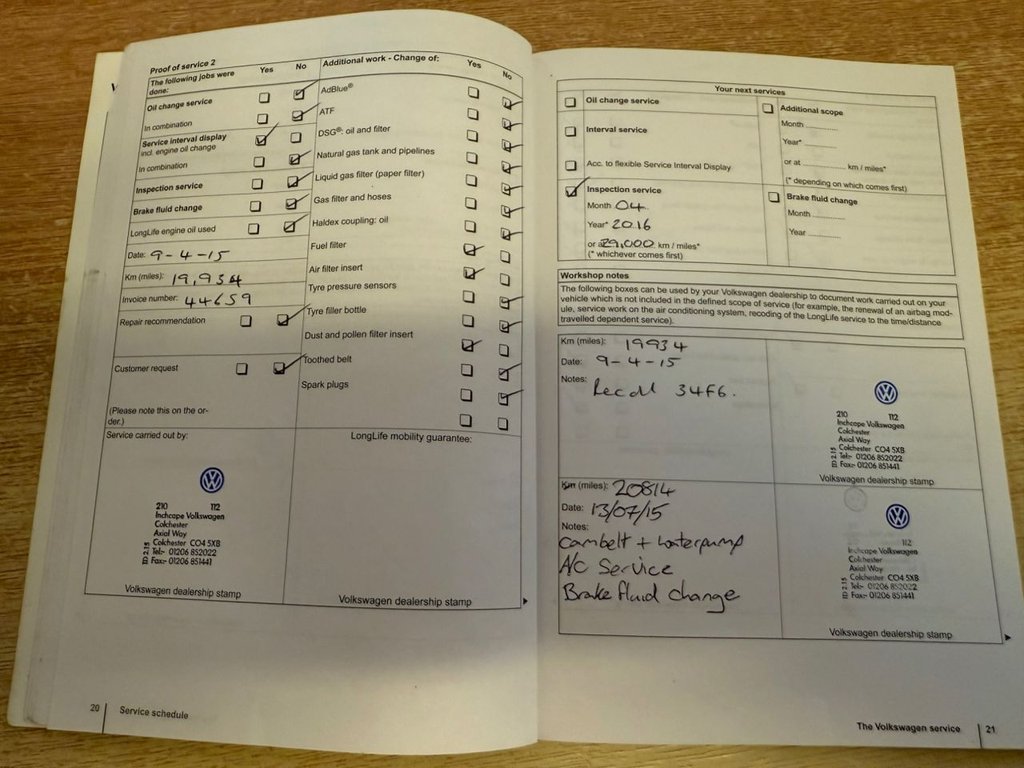 Proof of service 2
The following jobs were
done:
Yes
No
Oil change service
In combination
Service interval display
incl. engine oil change
In combination
Inspection service
Brake fluid change
LongLife engine oil used
Date: 9-4-15
Km (miles): 19,934
Invoice number: 44659
Repair recommendation
Customer request
(Please note this on the or-
der.)
Additional work - Change of:
Yes
No
AdBlue®
ATF
DSG®: oil and filter
Natural gas tank and pipelines
Liquid gas filter (paper filter)
Gas filter and hoses
Haldex coupling: oil
Fuel filter
Air filter insert
Tyre pressure sensors
Tyre filler bottle
Dust and pollen filter insert
Toothed belt
Spark plugs
Service carried out by:
210 112
Inchcape Volkswagen
Colchester
Axial Way
Colchester CO4 5XB
Tel:- 01206 852022
Fax:- 01206 851441
ED 2.15
Volkswagen dealership stamp
LongLife mobility guarantee:
Volkswagen dealership stamp
20
Service schedule
Your next services
Oil change service
Interval service
Acc. to flexible Service Interval Display
Inspection service
Month 04
Year* 2016
or at 29,000 km / miles*
(* whichever comes first)
Additional scope
Month ............
Year* ............
or at ............ km / miles*
(* depending on which comes first)
Brake fluid change
Month ............
Year ............
Workshop notes
The following boxes can be used by your Volkswagen dealership to document work carried out on your
vehicle which is not included in the defined scope of service (for example, the renewal of an airbag mod-
ule, service work on the air conditioning system, recoding of the LongLife service to the time/distance
travelled dependent service).
Km (miles): 19934
Date: 9-4-15
Notes: Recall 34F6.
210 112
Inchcape Volkswagen
Colchester
Axial Way
Colchester CO4 5XB
Tel:- 01206 852022
Fax:- 01206 851441
ED 2.15
Volkswagen dealership stamp
Km (miles): 20814
Date: 13/07/15
Notes:
Cambelt + waterpump
A/C Service
Brake fluid change
112
Inchcape Volkswagen
Colchester
Axial Way
Colchester CO4 5XB
Tel:- 01206 852022
Fax:- 01206 851441
Volkswagen dealership stamp
The Volkswagen service
21